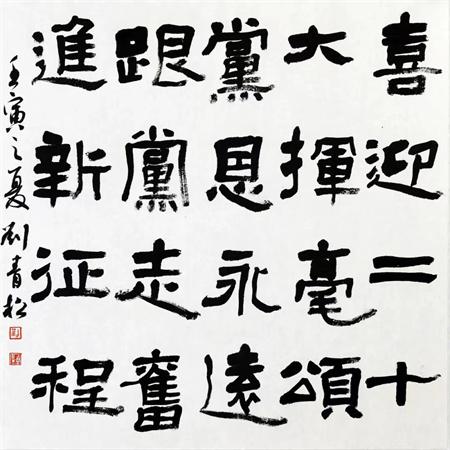 喜迎二十
大揮毫頌
黨恩永遠
跟黨走奮
進新征程
壬寅之夏劉青松